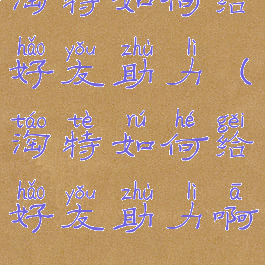 淘特如何给
hǎo yǒu zhù lì
好友助力(
táo tè rú hé gěi
淘特如何给
hǎo yǒu zhù lì ā
好友助力啊